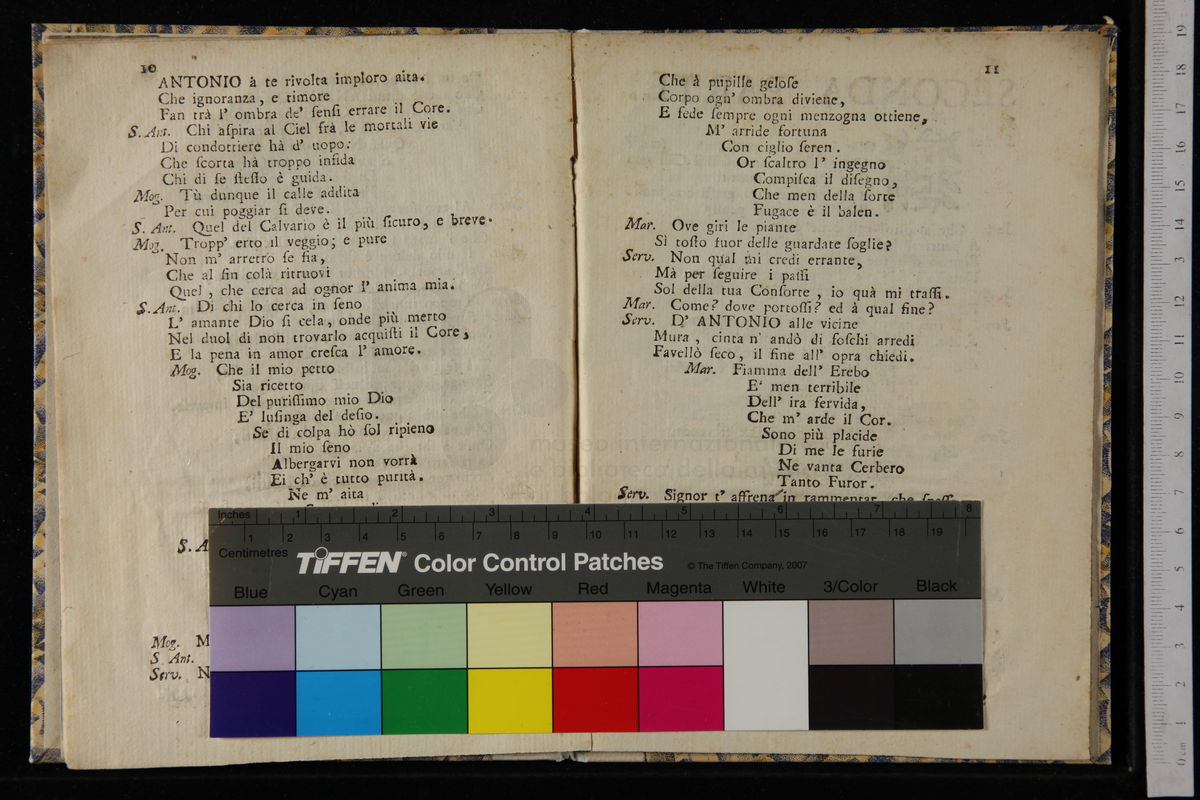 10
ANTONIO à te rivolta imploro aita.
Che ignoranza, e timore
Fan trà l' ombra de' ſenſi errare il Core.
S. Ant. Chi aſpira al Ciel frà le mortali vie
Di condottiere hà d' uopo:
Che ſcorta hà troppo infida
Chi di ſe ſteſſo è guida.
Mog. Tù dunque il calle addita
Per cui poggiar ſi deve.
S. Ant. Quel del Calvario è il più ſicuro, e breve.
Mog. Tropp' erto il veggio; e pure
Non m' arretro ſe fia,
Che al fin colà ritruovi
Quel, che cerca ad ognor l' anima mia.
S. Ant. Di chi lo cerca in ſeno
L' amante Dio ſi cela, onde più merto
Nel duol di non trovarlo acquiſti il Core,
E la pena in amor creſca l' amore.
Mog. Che il mio petto
Sia ricetto
Del puriſſimo mio Dio
E' luſinga del deſio.
Se di colpa hò ſol ripieno
Il mio ſeno
Albergarvi non vorrà
Ei ch' è tutto purità.
Ne m' aita
S. A
Mog. M
S Ant.
Serv. N
11
Che à pupille geloſe
Corpo ogn' ombra diviene,
E fede ſempre ogni menzogna ottiene,
M' arride fortuna
Con ciglio ſeren.
Or ſcaltro l' ingegno
Compiſca il diſegno,
Che men della ſorte
Fugace è il balen.
Mar. Ove giri le piante
Sì toſto fuor delle guardate ſoglie?
Serv. Non qual mi credi errante,
Mà per ſeguire i paſſi
Sol della tua Conſorte, io quà mi traſſi.
Mar. Come? dove portoſſi? ed à qual fine?
Serv. D' ANTONIO alle vicine
Mura, cinta n' andò di foſchi arredi
Favellò ſeco, il fine all' opra chiedi.
Mar. Fiamma dell' Erebo
E' men terribile
Dell' ira fervida,
Che m' arde il Cor.
Sono più placide
Di me le furie
Ne vanta Cerbero
Tanto Furor.
Serv. Signor t' affrena in rammentar, che
Inches 1 2 3 4 5 6 7 8
1 2 3 4 5 6 7 8 9 10 11 12 13 14 15 16 17 18 19
Centimetres
TIFFEN® Color Control Patches © The Tiffen Company, 2007
Blue Cyan Green Yellow Red Magenta White 3/Color Black
museo internazionale
biblioteca della musica
0 cm 1 2 3 4 5 6 7 8 9 10 11 12 13 14 15 16 17 18 19